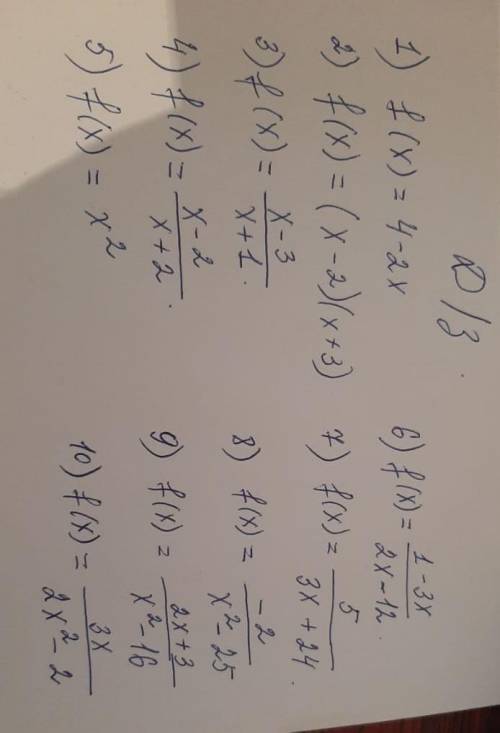 D/З
1) f(x) = 4-2x
2) f(x) = (x-2)(x+3)
3) f(x) = (x-3)/(x+1).
4) f(x) = (x-2)/(x+2).
5) f(x) = x²
6) f(x) = (1-3x)/(2x-12).
7) f(x) = 5/(3x+24).
8) f(x) = -2/(x²-25)
9) f(x) = (2x+3)/(x²-16)
10) f(x) = 3x/(2x²-2)